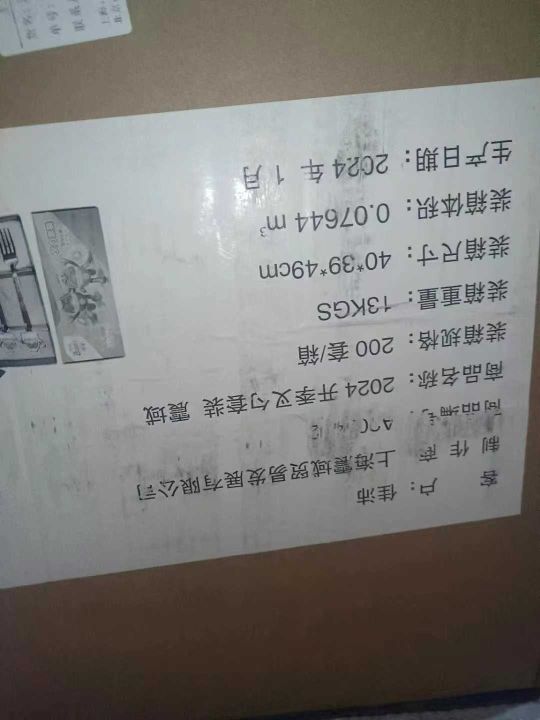 客 户: 佳沛
制 作 商 上海震域贸易发展有限公司
商品编号:
商品名称: 2024 开季叉勺套装 震域
装箱规格: 200 套/箱
装箱重量: 13KGS
装箱尺寸: 40*39*49cm
装箱体积: 0.07644 m³
生产日期: 2024 年 1 月